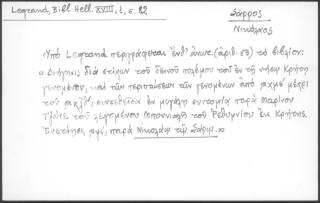 Legrand, Bibl. Hell. XVIII, t, σ. 82
Σάρρος
Νικόλαος
Ὑπὸ Legrand περιγράφεται ἐνθ' ἄνω (ἀριθ. 63) τὸ βιβλίον:
« Διήγησις διὰ στίχων τοῦ δεινοῦ πολέμου τοῦ ἐν τῇ νήσῳ Κρήτῃ
γενομένου, καὶ τῶν περιπτώσεων τῶν γενομένων ἀπὸ αχμε μέχρι
τοῦ αχξθ', συνετεθεῖσα ἐν μεγάλῃ συντομίᾳ παρὰ Μαρίνου
Τζάνε τοῦ λεγομένου Μπουνιαλῆ τοῦ Ῥεθυμνίου ἐκ Κρήτης.
Ἐνετίησι, παρὰ Νικολάῳ τῷ Σάρῳ.»